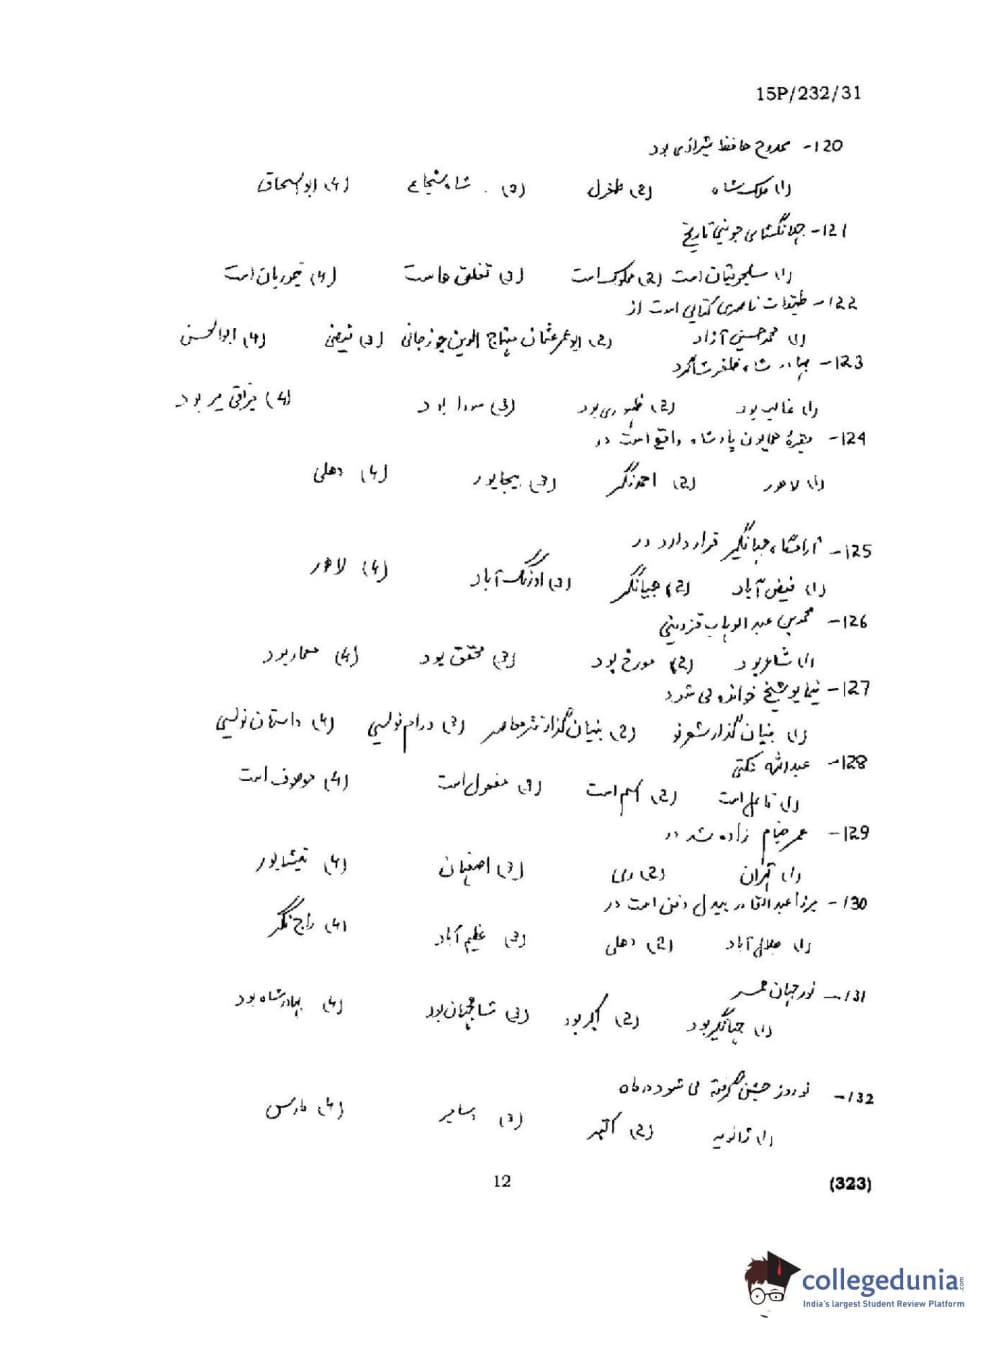 15P/232/31
120- ممدوح حافظ شیرازی بود
(1) ملک شاه (2) طغرل (3) شاہ شجاع (4) ابو اسحاق
121- جہانگشای جوینی تاریخ
(1) سلجوقیان است (2) ملوک است (3) تغلق ها ست (4) تیموریان است
122- طبقات ناصری کتابی است از
(1) محمد حسین آزاد (2) ابو عمر عثمان منہاج الدین جوزجانی (3) فیضی (4) ابوالحسن
123- بہادر شاہ ظفر شاگرد
(1) غالب بود (2) ظہوری بود (3) سودا بود (4) میر بود
124- مقبرۂ همایون پادشاہ واقع است در
(1) لاهور (2) احمدنگر (3) بیجاپور (4) دهلی
125- آرامگاہ جہانگیر قرار دارد در
(1) فیض آباد (2) جہانگر (3) اورنگ آباد (4) لاهور
126- محمد بن عبد الوہاب قزوینی
(1) شاعر بود (2) مورخ بود (3) محقق بود (4) معمار بود
127- نیما یوشیج خواندہ می شود
(1) بنیان گذار شعر نو (2) بنیان گذار نثر معاصر (3) درام نویسی (4) داستان نویسی
128- عبداللہ
(1) فاعل است (2) اسم است (3) مفعول است (4) موصوف است
129- عمر خیام زادہ شد در
(1) تہران (2) ری (3) اصفہان (4) نیشاپور
130- میرزا عبدالقادر بیدل دفن است در
(1) جلال آباد (2) دهلی (3) عظیم آباد (4) راج نگر
131- نور جہان همسر
(1) جہانگیر بود (2) اکبر بود (3) شاهجہان بود (4) بہادر شاہ بود
132- نوروز جشن گرفتہ می شود در ماہ
(1) ژانویہ (2) اکتبر (3) دسامبر (4) مارس
12
(323)
collegedunia.com
India's largest Student Review Platform